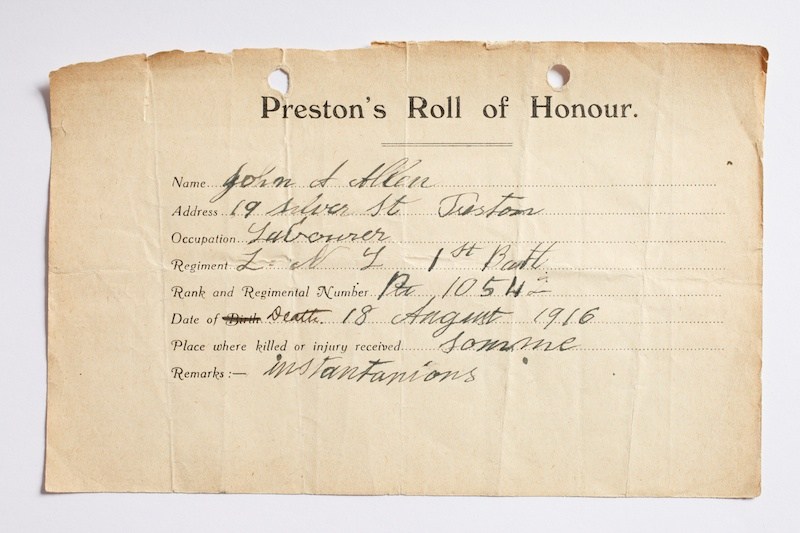 Preston's Roll of Honour.
Name John A Allen
Address 19 Silver St Preston
Occupation Labourer
Regiment L N L 1st Batt
Rank and Regimental Number Pte
Date of Birth Death 18 August 1916
Place where killed or injury received Somme
Remarks:— instantanions